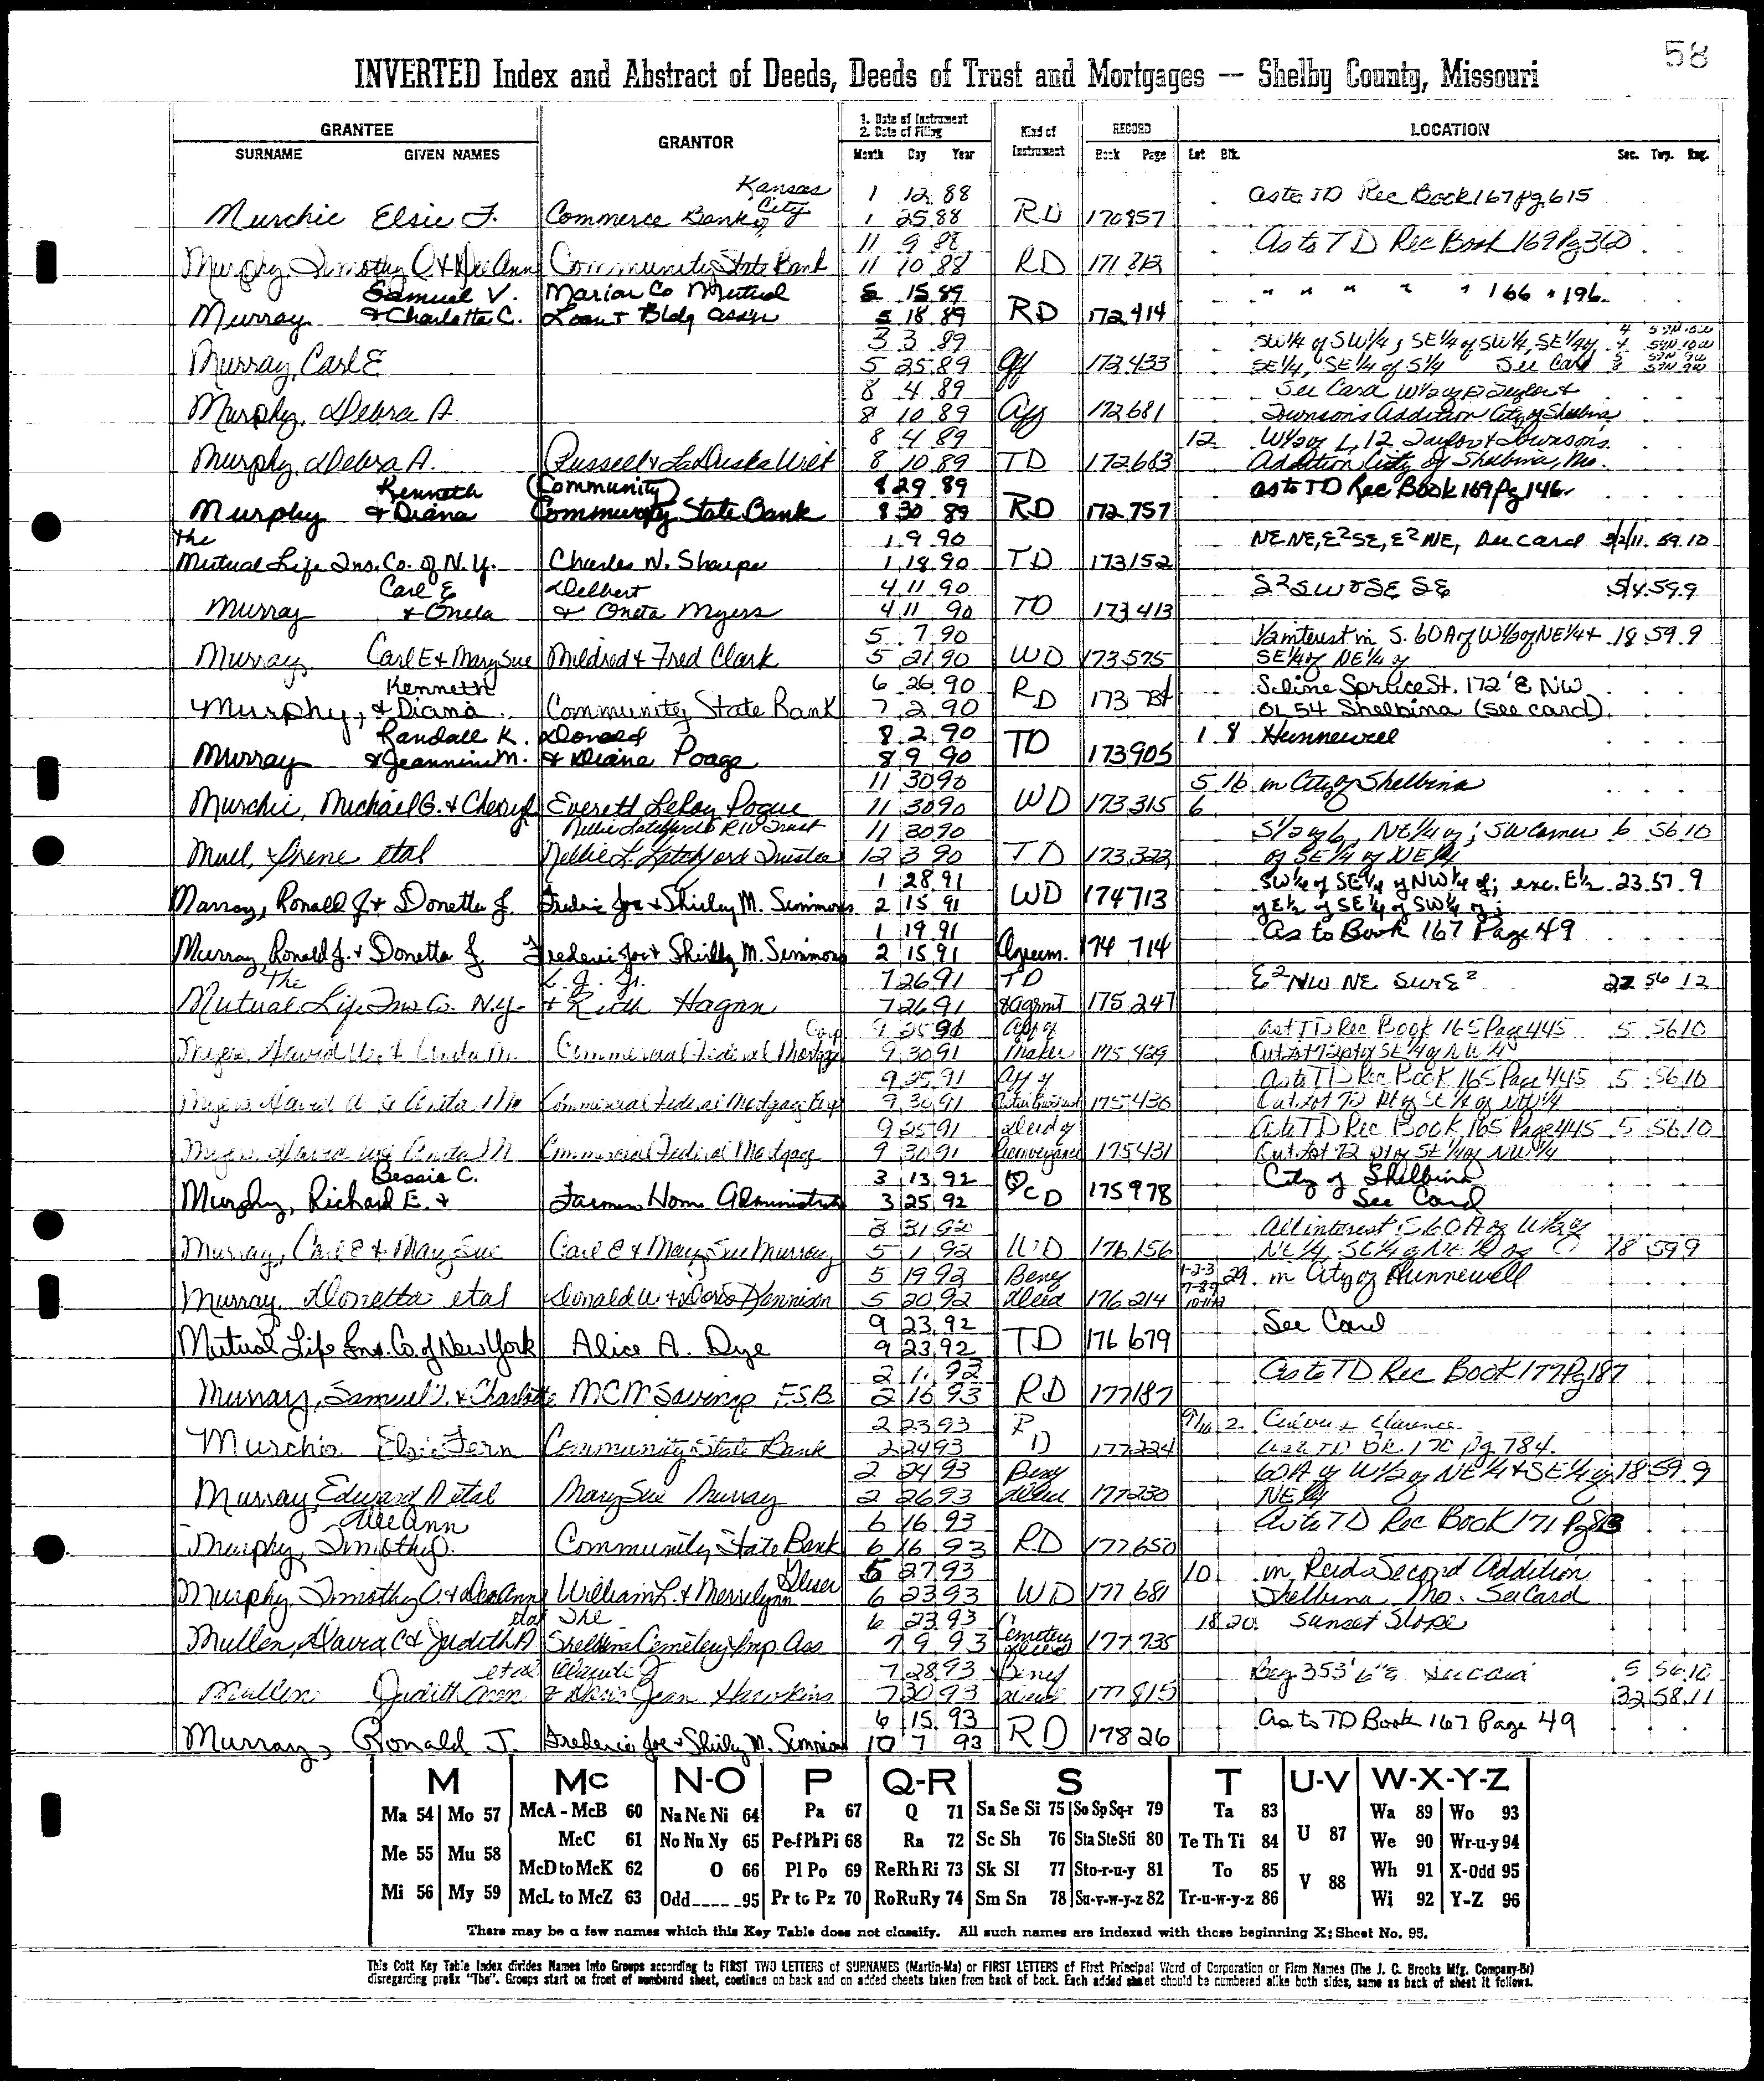 58
INVERTED Index and Abstract of Deeds, Deeds of Trust and Mortgages — Shelby County, Missouri
GRANTEE GRANTOR 1. Date of Instrument 2. Date of Filing Kind of Instrument RECORD LOCATION
SURNAME GIVEN NAMES Month Day Year Book Page Lot Blk. Sec. Twp. Rng.
Kansas 1 12 88 as to TD Rec Book 167 pg 615
Murchie Elsie F. Commerce Bank of City 1 25 88 RD 170 857
11 9 88 As to TD Rec Book 169 Pg 360
Murphy, Timothy O & DeeAnn Community State Bank 11 10 88 RD 171 813
Samuel V. Marion Co Mutual 5 15 89 " " " " " 166 " 196
Murray & Charlotte C. Loan & Bldg Assn 5 18 89 RD 172 414
3 3 89 SW¼ of SW¼, SE¼ of SW¼, SE¼ of
Murray, Carl E 5 25 89 Aff 172 433 SE¼, SE¼ of S¼ See Card
8 4 89 See Card W½ of
Murphy, Debra A. 8 10 89 Aff 172 681 Addition City of Shelbina
8 4 89 12 W½ of L 12 Taylor & Towsons
Murphy, Debra A. Russell & LaDuska Wilt 8 10 89 TD 172 683 Addition City of Shelbina, Mo.
Kenneth (Community) 8 29 89 as to TD Rec Book 169 Pg 146
Murphy & Diana Community State Bank 8 30 89 RD 172 757
The 1 9 90 NE NE, E²SE, E²NE, See card 3/2/11 59 10
Mutual Life Ins. Co. of N.Y. Charles N. Sharpe 1 18 90 TD 173 152
Carl E Delbert 4 11 90 S²SW & SE SE 5/4 59 9
Murray & Oneta & Oneta Myers 4 11 90 TD 173 413
5 7 90 ½ interest in S. 60A of W½ of NE¼ & 18 59 9
Murray Carl E & Mary Sue Mildred & Fred Clark 5 21 90 WD 173 575 SE¼ of NE¼ of
Kenneth 6 26 90 S. line Spruce St. 172' E NW
Murphy, & Diana Community State Bank 7 2 90 RD 173 OL 54 Shelbina (see card)
Randall K. Donald 8 2 90 1 8 Hunnewell
Murray & Jeannine M. & Diana Poage 8 9 90 TD 173 905
11 30 90 5 16 in City of Shelbina
Murchie, Michael G. & Cheryl Everett LeRoy Pogue 11 30 90 WD 173 315 6
Nellie Latchford RIV Trust 11 30 90 S½ of 6, NE¼ of; SW corner 6 56 10
Mull, Irene etal Nellie L. Latchford Trustee 12 3 90 TD 173 323 of SE¼ of NE¼
1 28 91 SW¼ of SE¼ of NW¼ of; exc. E½ 23 57 9
Murray, Ronald J & Donetta J. Frederic Joe & Shirley M. Simmons 2 15 91 WD 174 713 of E½ of SE¼ of SW¼ of;
1 19 91 As to Book 167 Page 49
Murray, Ronald J. & Donetta J. Frederic Joe & Shirley M. Simmons 2 15 91 Agreem. 174 714
The L. J. Jr. 7 26 91 TD E²NW NE 22 56 12
Mutual Life Ins Co. N.Y. & Ruth Hagan 7 26 91 & Agmnt 175 247
Corp 9 25 91 Aff of as to TD Rec Book 165 Page 445 5 56 10
Myers, David W. & Anita M. Commercial Federal Mortgage 9 30 91 Maker 175 429 Out Lot 72 pt of SE¼ of NW¼
9 25 91 Aff of As to TD Rec Book 165 Page 445 5 56 10
Myers David W & Anita M Commercial Federal Mortgage Corp 9 30 91 175 430 Out Lot 72 Pt of SE¼ of NW¼
9 25 91 Deed of As to TD Rec Book 165 Page 445 5 56 10
Myers, David W & Anita M Commercial Federal Mortgage 9 30 91 Reconveyance 175 431 Out Lot 72 pt of SE¼ of NW¼
Bessie C. 3 13 92 City of Shelbina
Murphy, Richard E. & Farmers Home Administration 3 25 92 QCD 175 978 See Card
3 31 92 All interest S 60 A of W½ of
Murray, Carl E & Mary Sue Carl E & Mary Sue Murray 5 1 92 WD 176 156 NE¼, SE¼ of NE¼ of 18 59 9
5 19 92 Benef 1-2-3 7-8-9 29 in City of Hunnewell
Murray, Donetta etal Donald W & Doris Hannison 5 20 92 Deed 176 214 10-11-12
9 23 92 See Card
Mutual Life Ins. Co. of New York Alice A. Dye 9 23 92 TD 176 679
2 1 92 As to TD Rec Book 177 Pg 187
Murray, Samuel V. & Charlotte MCM Savings F.S.B. 2 16 93 RD 177 187
2 23 93 R 9/10 2 Clarence
Murchie Elsie Fern Community State Bank 2 24 93 D 177 224 as to TD Bk. 170 pg 784.
2 24 93 Benef 60A of W½ of NE¼ & SE¼ of 18 59 9
Murray, Edward A etal Mary Sue Murray 2 26 93 Deed 177 230 NE¼
DeeAnn 6 16 93 As to TD Rec Book 171 Pg 813
Murphy, Timothy O. Community State Bank 6 16 93 RD 177 650
Gliser 5 27 93 10 in Reids Second Addition
Murphy Timothy O. & DeeAnn William L. & Merrilynn 6 23 93 WD 177 681 Shelbina, Mo. See Card
etal The 6 23 93 Cemetery 18 20 Sunset Slope
Mullen, David C & Judith A Shelbina Cemetery Imp. Ass 7 9 93 Deed 177 735
etal Claude J 7 28 93 Benef Beg 353'6"E See card 5 56 10
Mullen Judith Ann & Doris Jean Hawkins 7 30 93 Deed 177 815 32 58 11
6 15 93 As to TD Book 167 Page 49
Murray, Ronald J. Frederic Joe & Shirley M. Simmons 10 7 93 RD 178 26
M Mc N-O P Q-R S T U-V W-X-Y-Z
Ma 54 Mo 57 McA - McB 60 Na Ne Ni 64 Pa 67 Q 71 Sa Se Si 75 So Sp Sq-r 79 Ta 83 U 87 Wa 89 Wo 93
Me 55 Mu 58 McC 61 No Nu Ny 65 Pe-f Ph Pi 68 Ra 72 Sc Sh 76 Sta Ste Sti 80 Te Th Ti 84 We 90 Wr-u-y 94
McD to McK 62 O 66 Pl Po 69 Re Rh Ri 73 Sk Sl 77 Sto-r-u-y 81 To 85 V 88 Wh 91 X-Odd 95
Mi 56 My 59 McL to McZ 63 Odd 95 Pr to Pz 70 Ro Ru Ry 74 Sm Sn 78 Su-v-w-y-z 82 Tr-u-w-y-z 86 Wi 92 Y-Z 96
There may be a few names which this Key Table does not classify. All such names are indexed with those beginning X; Sheet No. 95.
This Cott Key Table Index divides Names Into Groups according to FIRST TWO LETTERS of SURNAMES (Martin-Ma) or FIRST LETTERS of First Principal Word of Corporation or Firm Names (The J. C. Brooks Mfg. Company-Br)
disregarding prefix "The". Groups start on front of numbered sheet, continue on back and on added sheets taken from back of book. Each added sheet should be numbered alike both sides, same as back of sheet it follows.